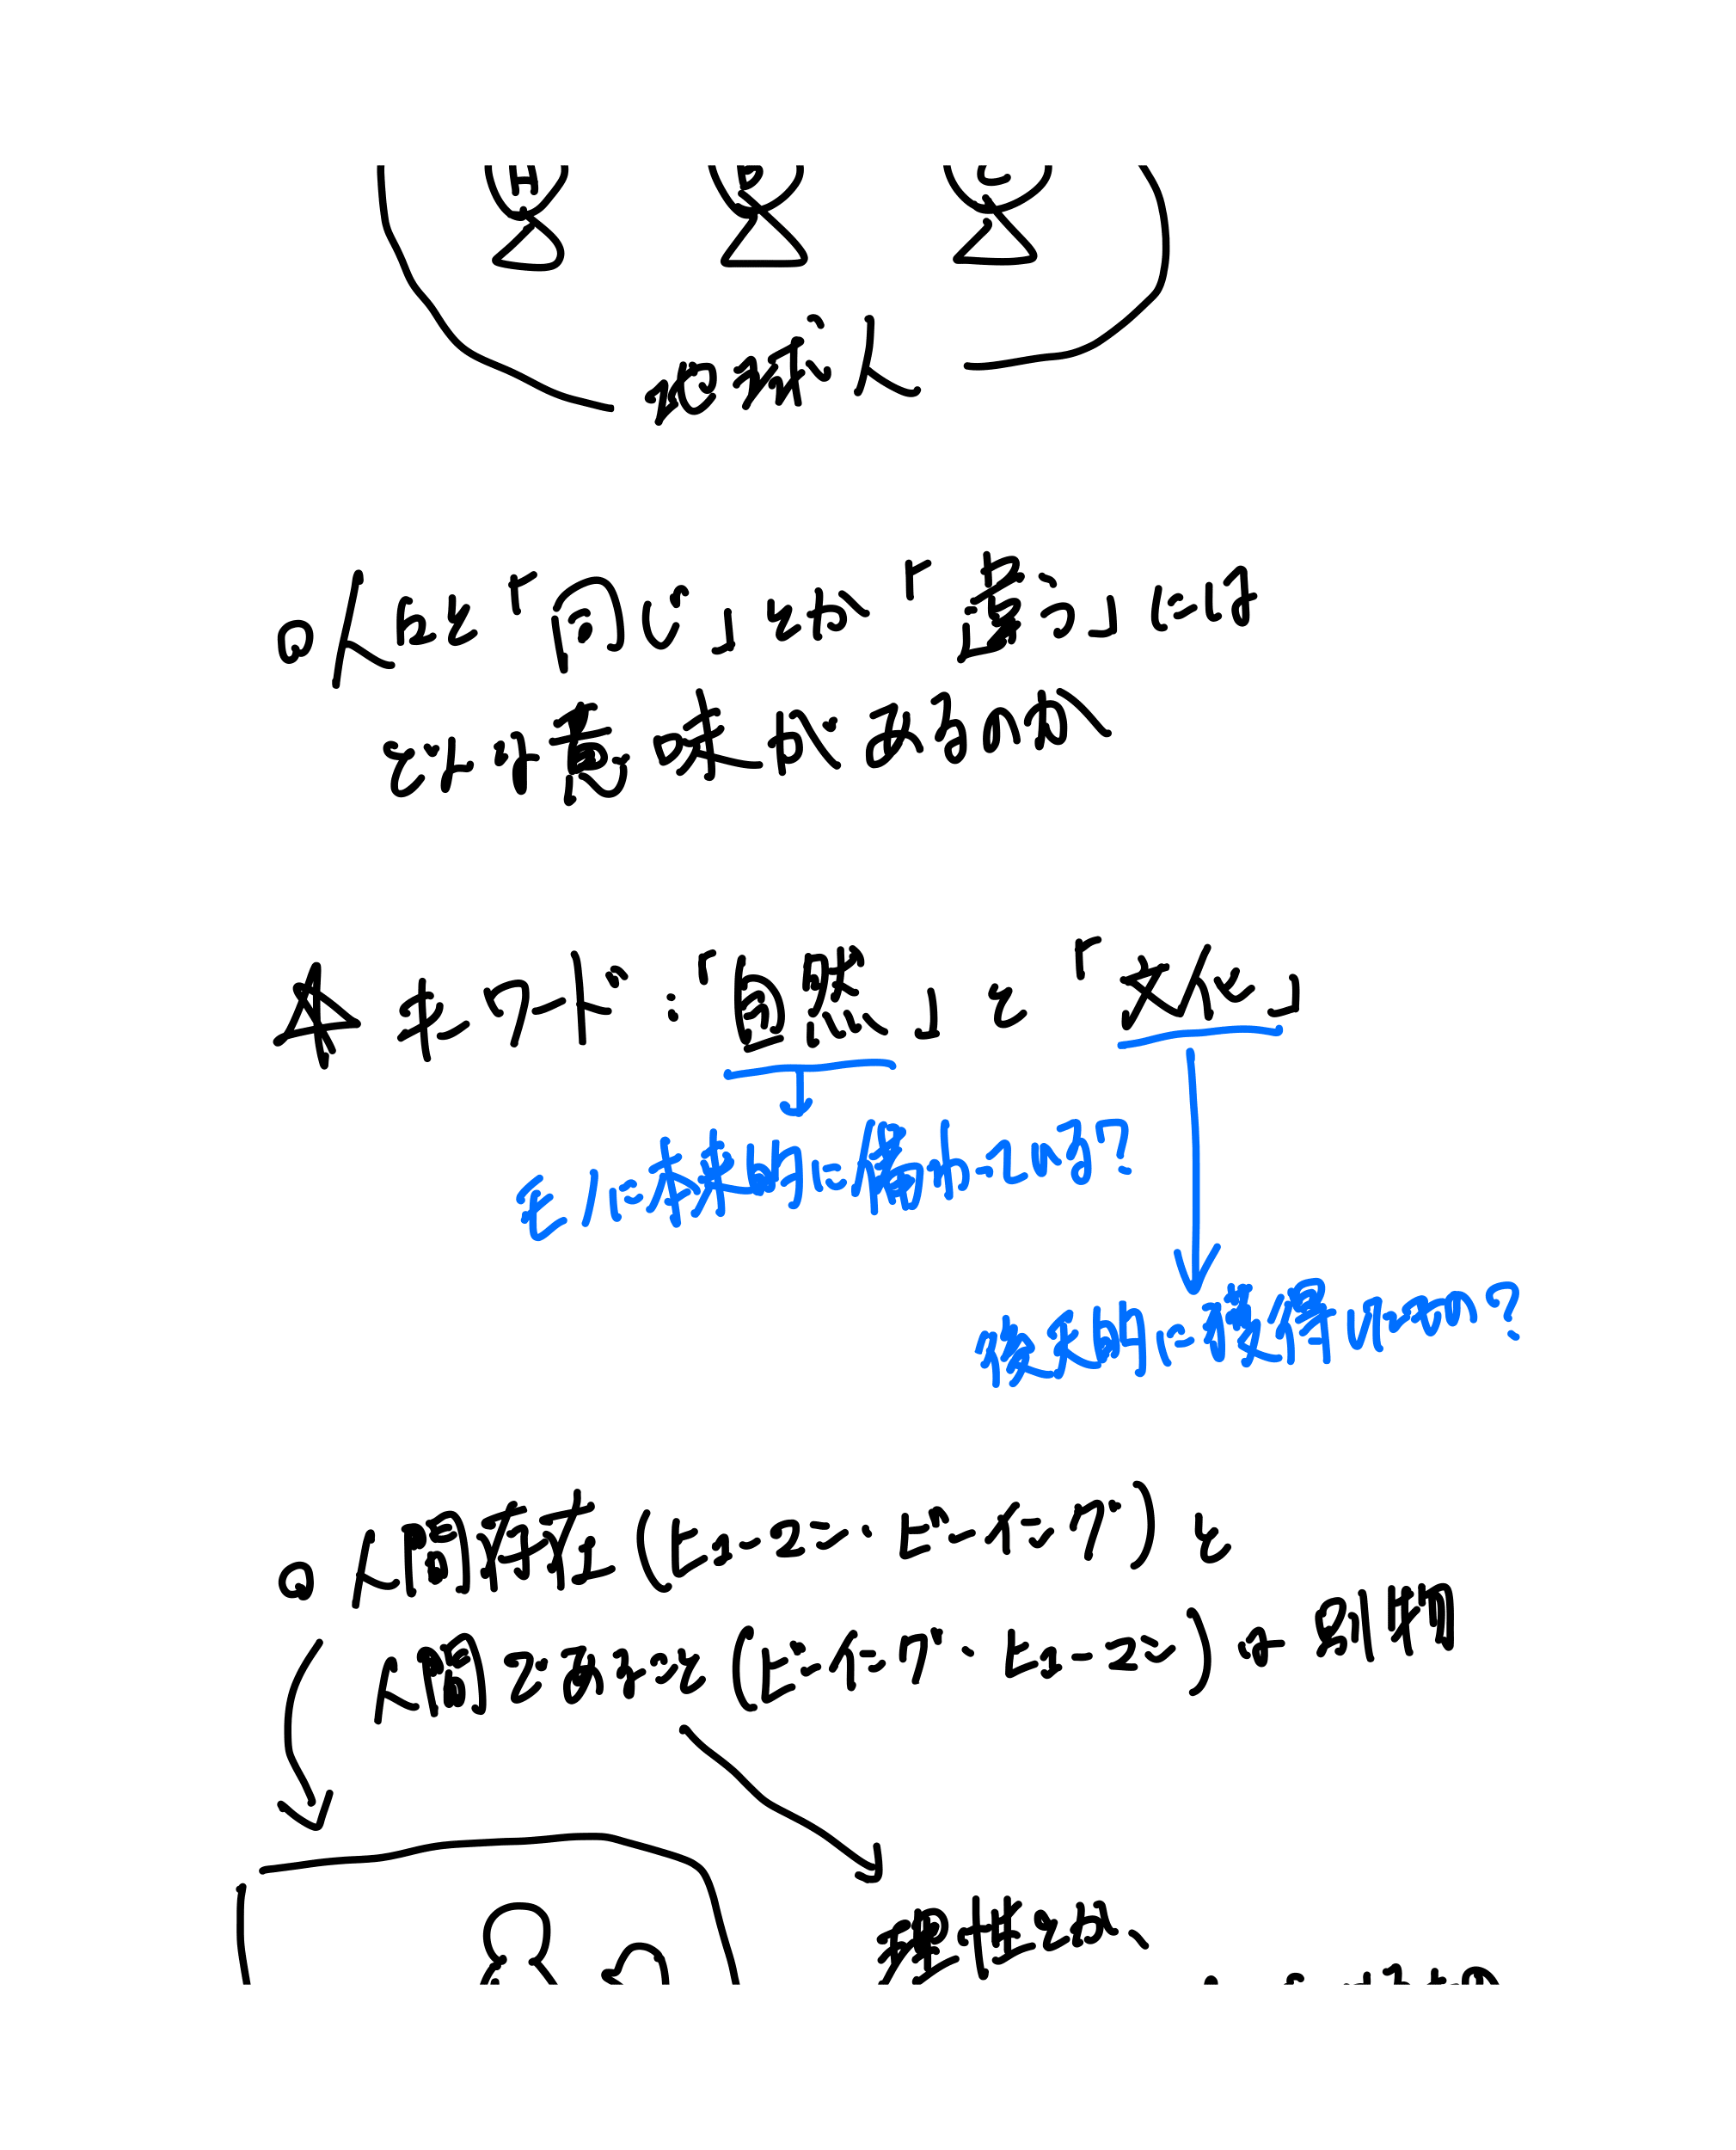 地球人
○人は「同じ」とか「違う」には
どんな意味があるのか
☆キーワード:「自然」と「文化」
モノに本来的に備わっているの?
後天的に獲得したもの?
○人間存在(ヒューマン・ビーイング)と
人間であること(ビーイング・ヒューマン)は別物
理性とか、